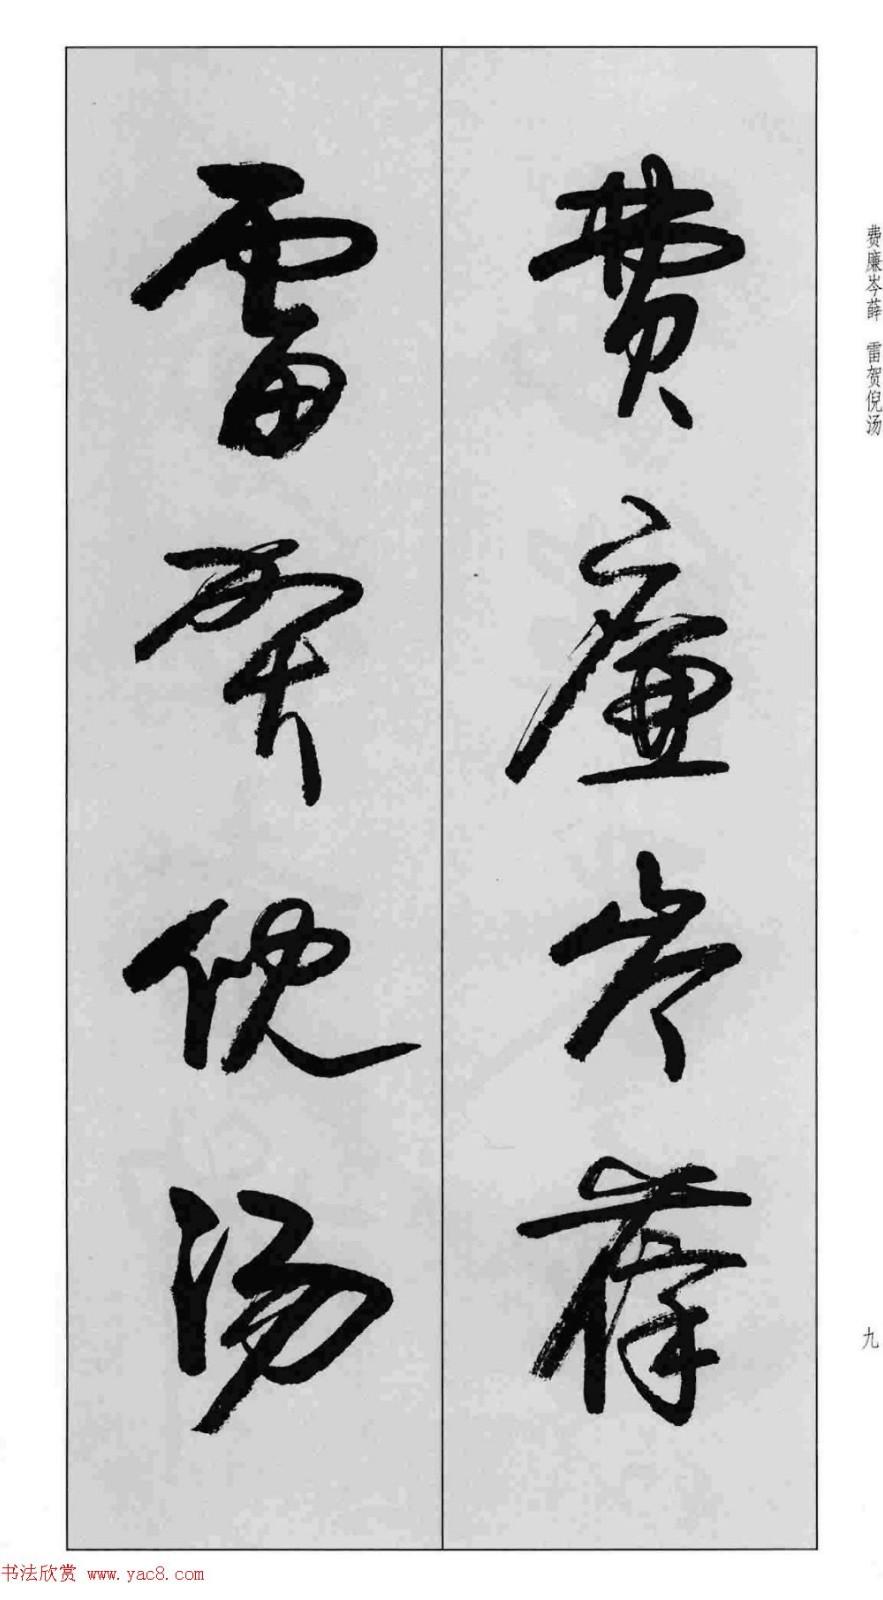 費廉岑薛
雷賀倪湯
费廉岑薛 雷贺倪汤
九
书法欣赏 www.yac8.com